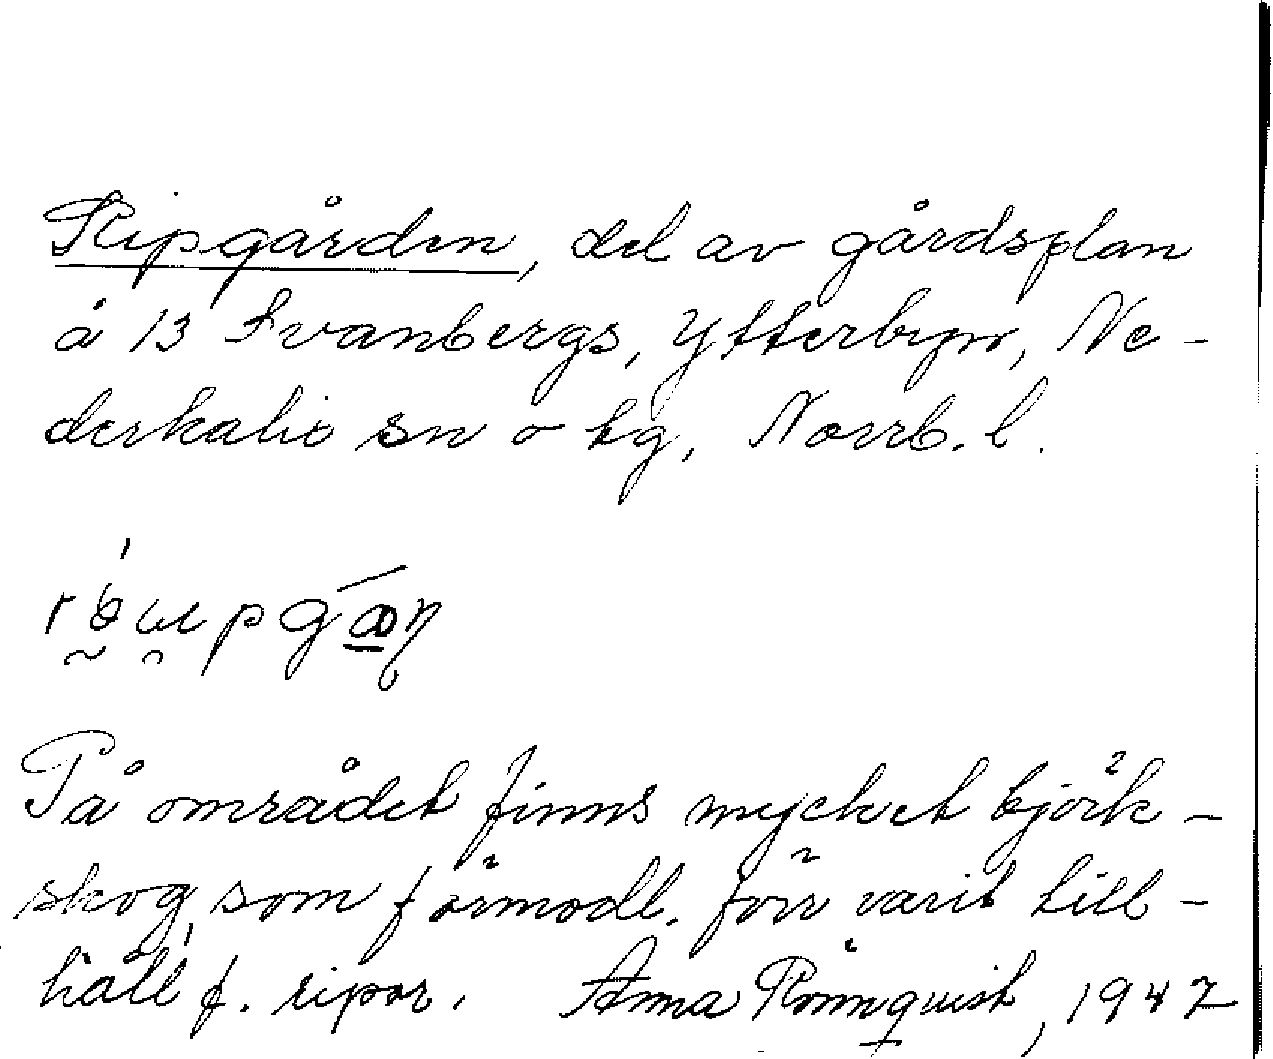 Ripgården, del av gårdsplan
å 13 Svanbergs, Ytterbyn, Ne-
derkalix sn o hg, Norrb. l.
På området finns mycket björk-
skog, som förmodl. förr varit till-
håll f. ripor. Anna Rönnquist, 1947